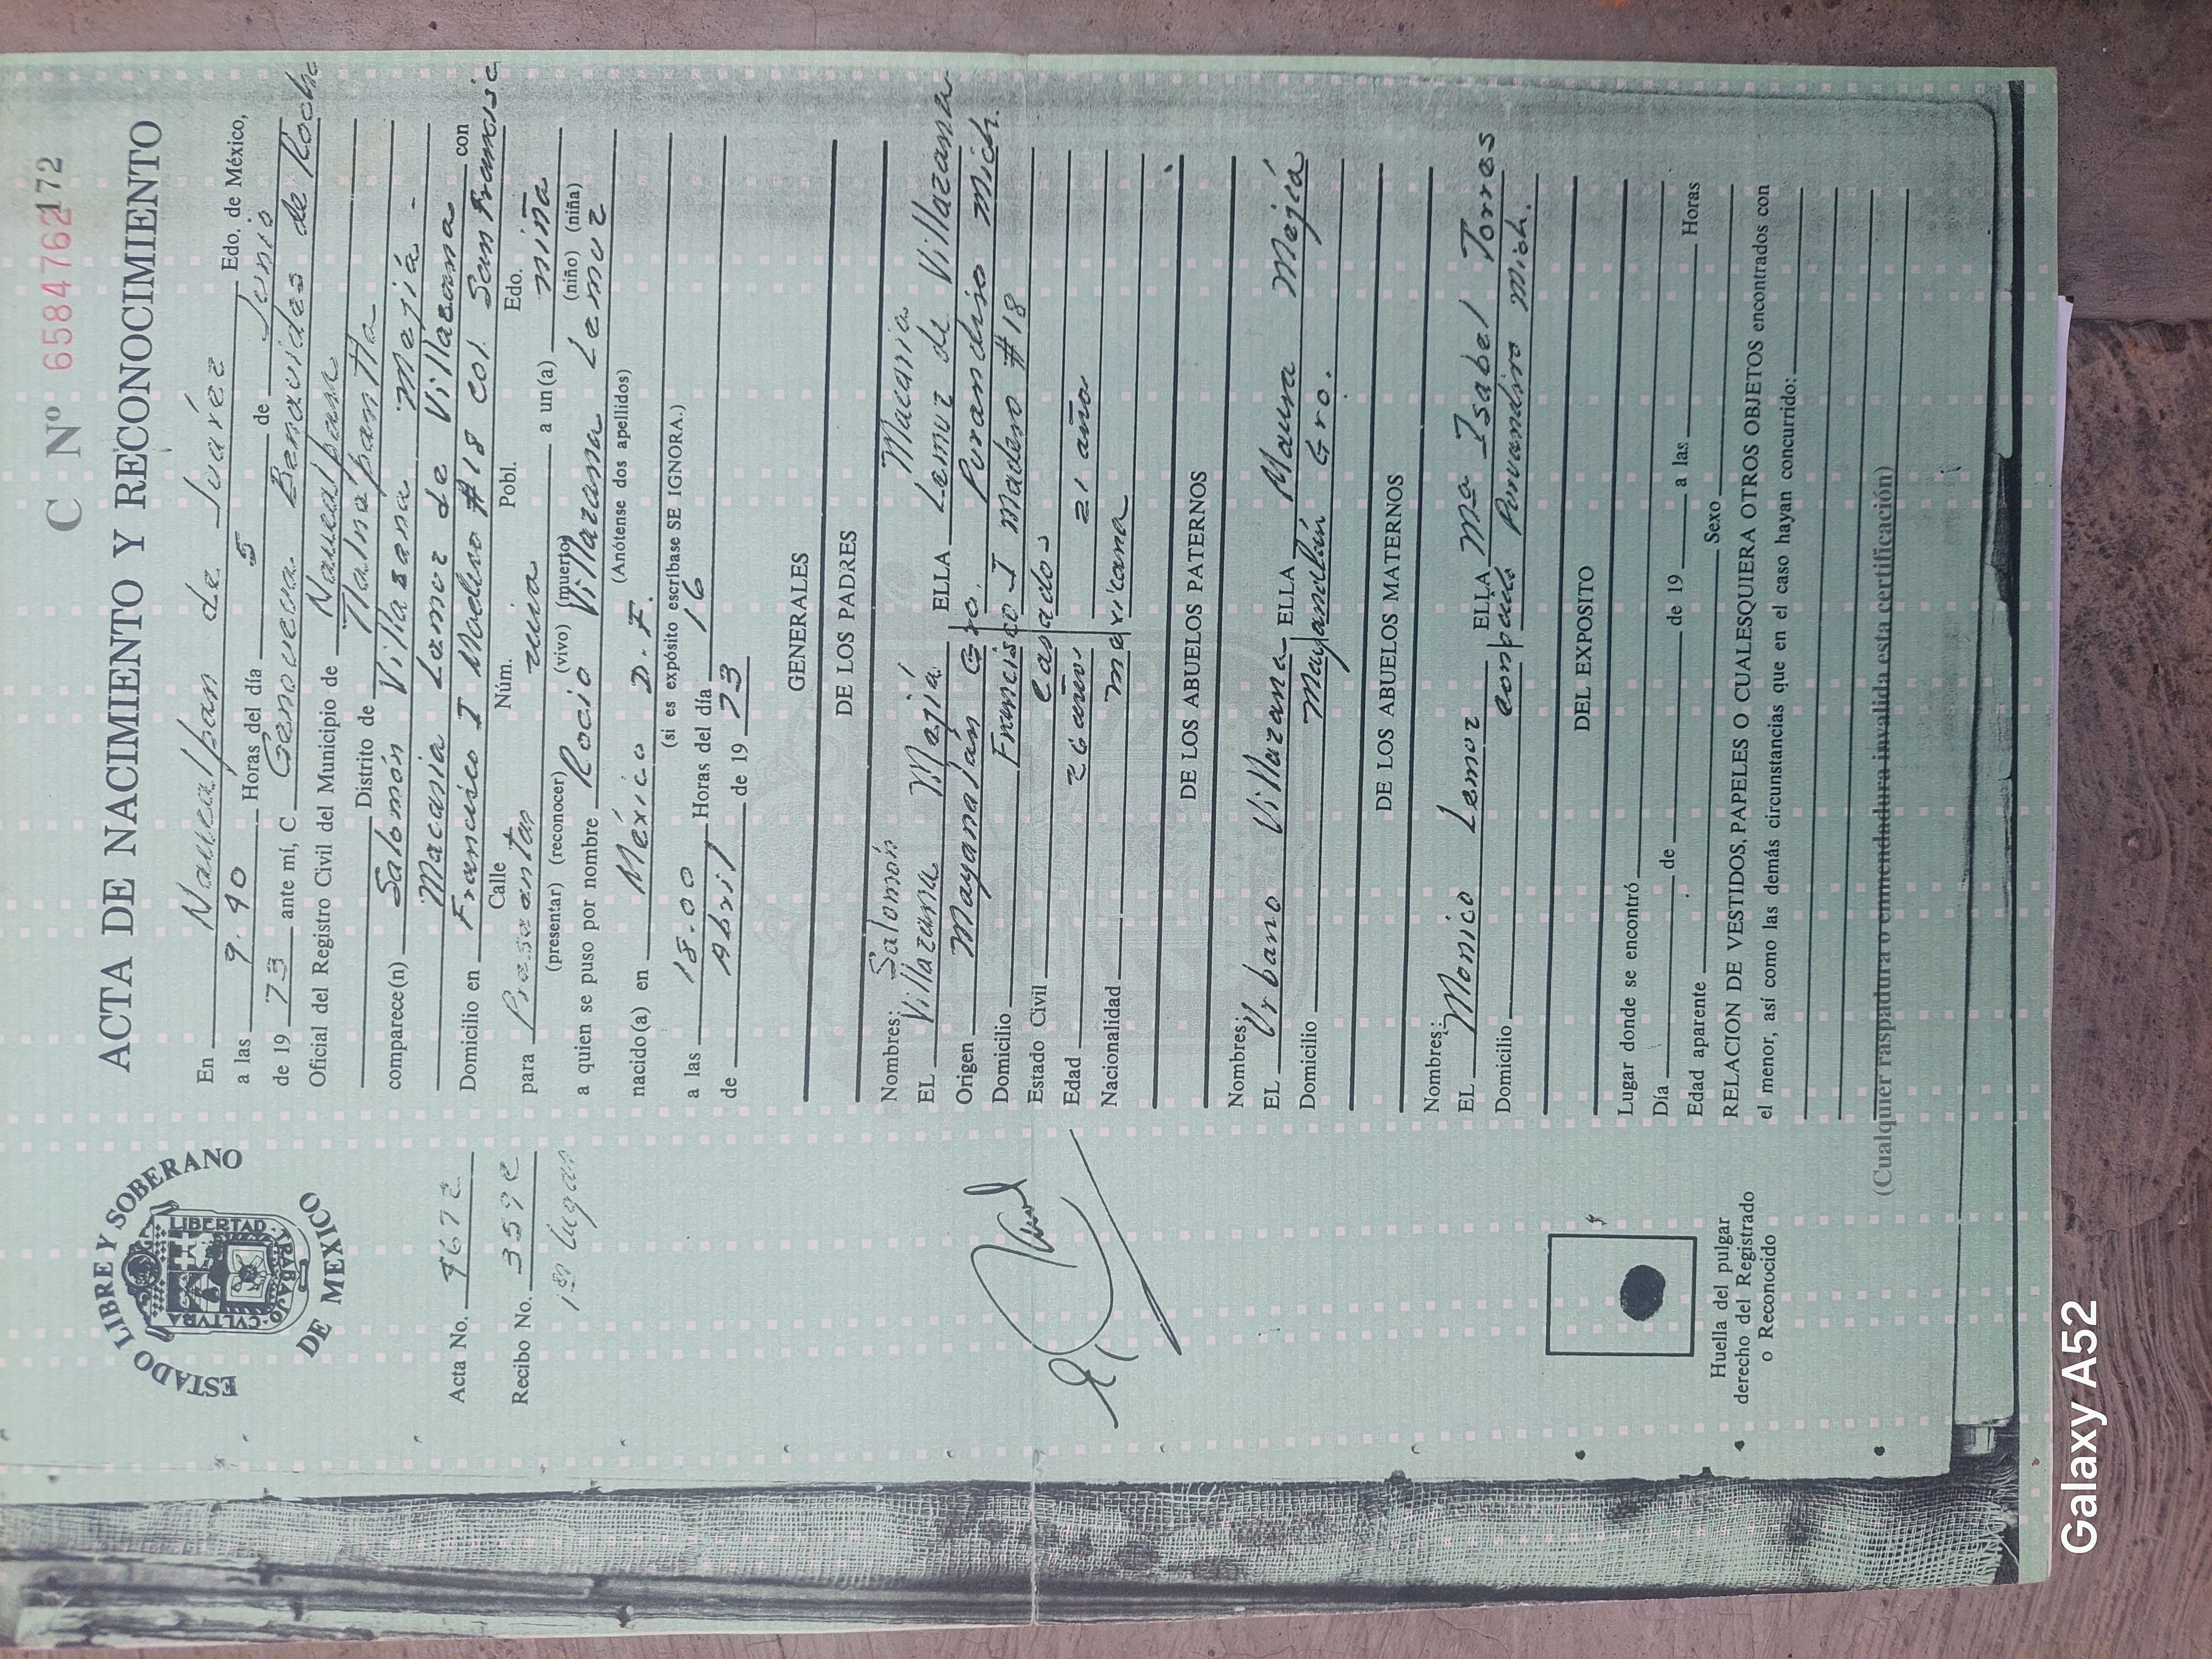 C Nº 6584762
172
ACTA DE NACIMIENTO Y RECONOCIMIENTO
ESTADO LIBRE Y SOBERANO
DE MEXICO
LIBERTAD
TRABAJO
CVLTVRA
En Naucalpan de Juárez Edo. de México,
a las 9.40 Horas del día 5 de Junio
de 19 73 ante mí, C. Genoveva Benavides de Rocha
Oficial del Registro Civil del Municipio de Naucalpan
Distrito de Tlalnepantla
comparece(n) Salomón Villasana Mejiá -
Acta No.
Macaria Lemuz de Villasana con
Domicilio en Francisco I Madero #18 col. San Francisc
Calle Núm. Pobl. Edo.
Recibo No. 359
para Presentar una a un(a) niña
(presentar) (reconocer) (vivo) (muerto) (niño) (niña)
1er lugar
a quien se puso por nombre Rocio Villazana Lemuz
(Anótense dos apellidos)
nacido(a) en México D.F.
(si es expósito escríbase SE IGNORA.)
a las 18.00 Horas del día 16
de Abril de 19 73
GENERALES
DE LOS PADRES
Nombres: Salomón Macaria
EL Villazana Mejiá ELLA Lemuz de Villazana
Origen Mayanalán Gro. Puruandiro Mich.
Domicilio Francisco I Madero #18
Estado Civil Casados
Edad 26 años 21 años
Nacionalidad mexicana
DE LOS ABUELOS PATERNOS
Nombres:
EL Urbano Villazana ELLA Maura Mejiá
Domicilio Mayanalán Gro.
DE LOS ABUELOS MATERNOS
Nombres:
EL Monico Lemuz ELLA Mª Isabel Torres
Domicilio Puruandiro Mich.
DEL EXPOSITO
Lugar donde se encontró
Día de de 19 a las Horas
Edad aparente Sexo
RELACION DE VESTIDOS, PAPELES O CUALESQUIERA OTROS OBJETOS encontrados con
el menor, así como las demás circunstancias que en el caso hayan concurrido:
Huella del pulgar
derecho del Registrado
o Reconocido
(Cualquier raspadura o enmendadura invalida esta certificación)
Galaxy A52